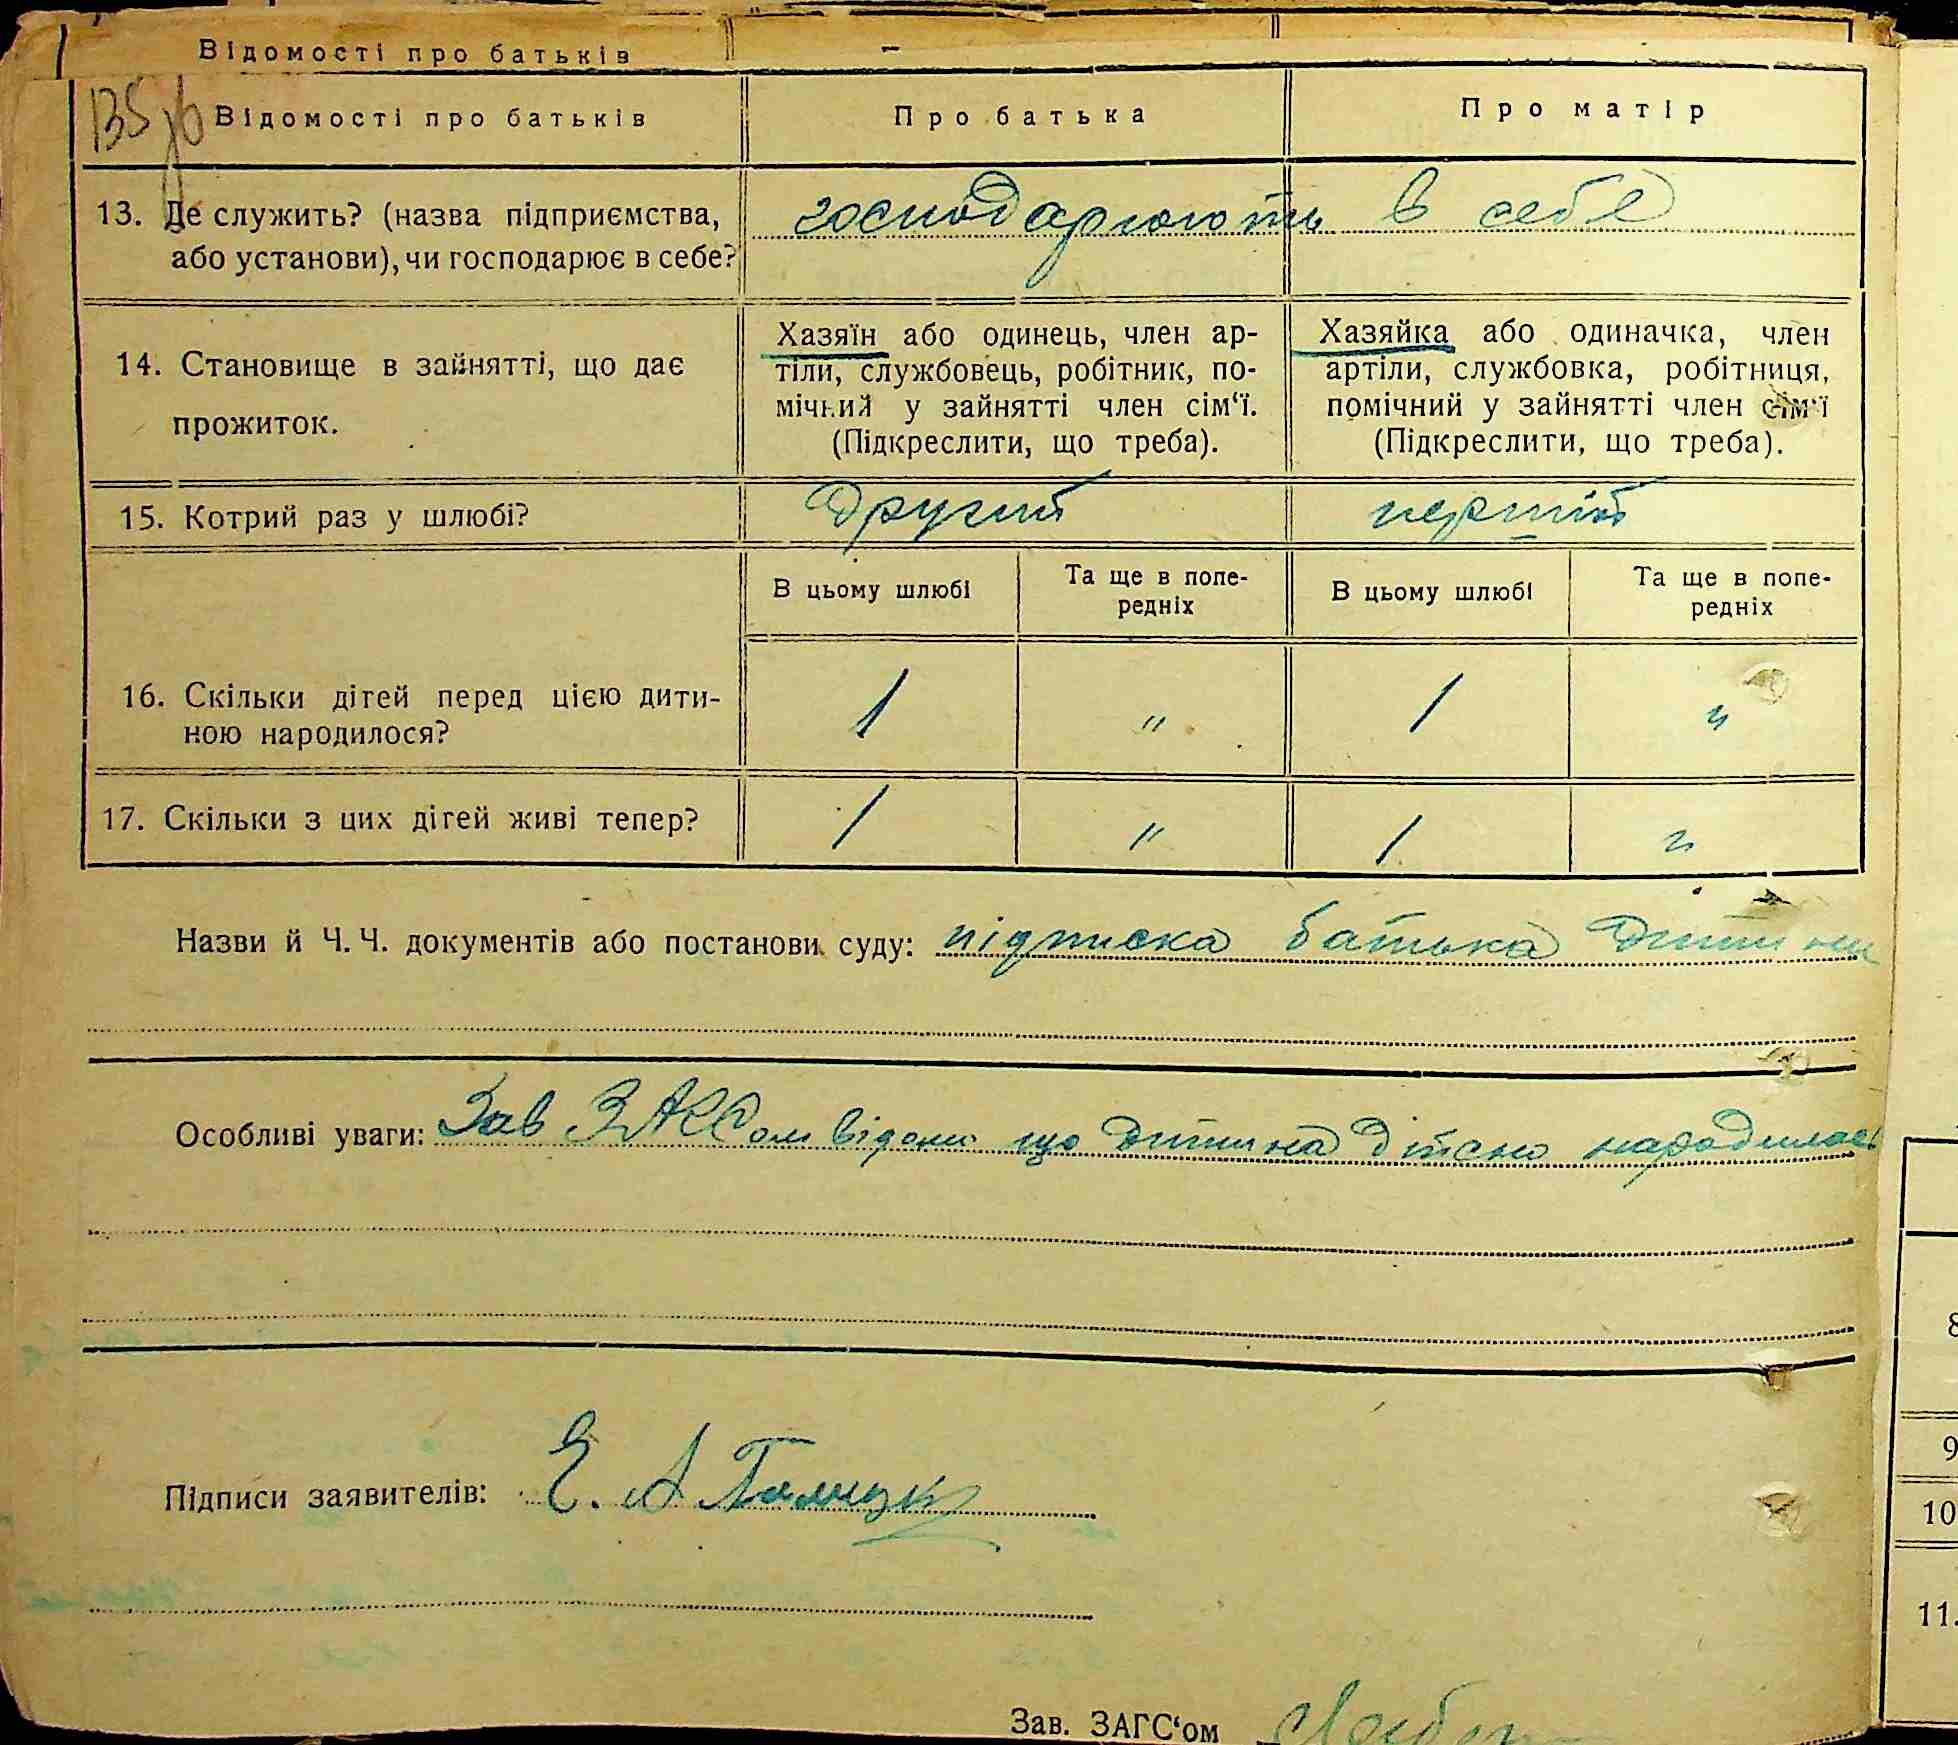 Відомості про батьків
135 зв Відомості про батьків Про батька Про матір
13. Де служить? (назва підприємства, або установи), чи господарює в себе?
господарюють в себе
14. Становище в зайнятті, що дає
прожиток.
Хазяїн або одинець, член ар-
тіли, службовець, робітник, по-
мічний у зайнятті член сім‘ї.
(Підкреслити, що треба).
Хазяйка або одиначка, член
артіли, службовка, робітниця,
помічний у зайнятті член сім‘ї
(Підкреслити, що треба).
15. Котрий раз у шлюбі? другий перший
В цьому шлюбі
Та ще в попе-
редніх
В цьому шлюбі
Та ще в попе-
редніх
16. Скільки дітей перед цією дити-
ною народилося?
1 " 1 "
17. Скільки з цих дітей живі тепер? 1 " 1 "
Назви й Ч. Ч. документів або постанови суду: підписка батька дитини
Особливі уваги: Зав ЗАГСом відомо що дитина дійсно народилась
Підписи заявителів: Є. А
Зав. ЗАГС‘ом
8
9
10
11.